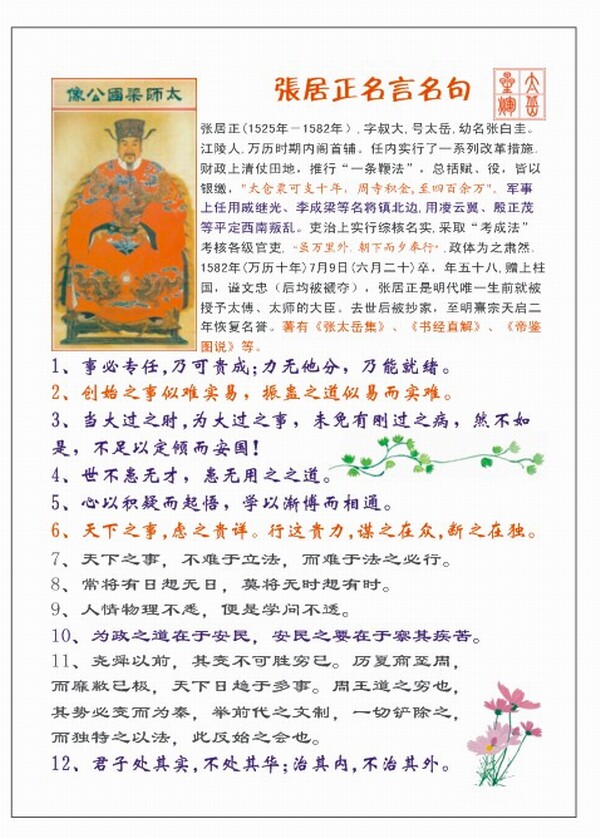 張居正名言名句
太岳
星輝
太師梁國公像
张居正(1525年-1582年),字叔大,号太岳,幼名张白圭。
江陵人,万历时期内阁首辅。任内实行了一系列改革措施.
财政上清仗田地，推行“一条鞭法”，总括赋、役，皆以
银缴，"太仓粟可支十年，周寺积金,至四百余万"。军事
上任用戚继光、李成梁等名将镇北边,用凌云翼、殷正茂
等平定西南叛乱。吏治上实行综核名实,采取“考成法”
考核各级官吏,“虽万里外,朝下而夕奉行”,政体为之肃然.
1582年(万历十年)7月9日(六月二十)卒，年五十八,赠上柱
国，谥文忠（后均被褫夺），张居正是明代唯一生前就被
授予太傅、太师的大臣。去世后被抄家，至明熹宗天启二
年恢复名誉。著有《张太岳集》、《书经直解》、《帝鉴
图说》等。
1、事必专任,乃可责成;力无他分，乃能就绪。
2、创始之事似难实易，振蛊之道似易而实难。
3、当大过之时,为大过之事，未免有刚过之病，然不如
是，不足以定倾而安国！
4、世不患无才，患无用之之道。
5、心以积疑而起悟，学以渐博而相通。
6、天下之事,虑之贵详。行这贵力,谋之在众,断之在独。
7、天下之事，不难于立法，而难于法之必行。
8、常将有日想无日，莫将无时想有时。
9、人情物理不悉，便是学问不透。
10、为政之道在于安民，安民之要在于察其疾苦。
11、尧舜以前，其变不可胜穷已。历夏商至周，
而靡敝已极，天下日趋于多事。周王道之穷也，
其势必变而为秦，举前代之文制，一切铲除之，
而独特之以法，此反始之会也。
12、君子处其实,不处其华;治其内,不治其外。